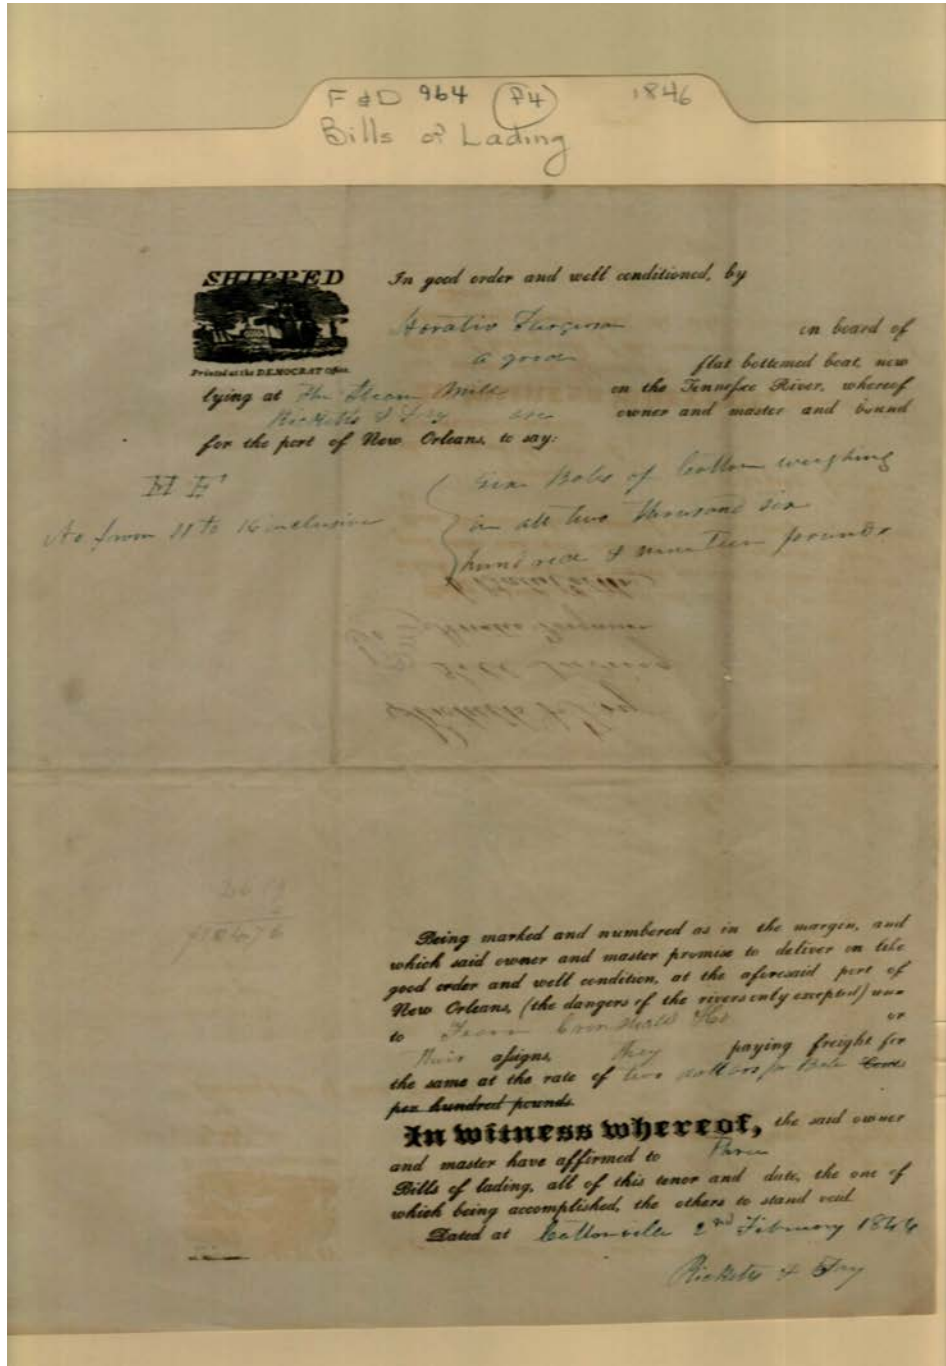 F & D 964 (P4) 1846
Bills of Lading
SHIPPED
Printed at the DEMOCRAT Office.
In good order and well conditioned, by
Horatio Ferguson on board of
a good flat bottomed boat, now
lying at The Steam Mill on the Tennessee River, whereof
Ricketts & Fry are owner and master and bound
for the port of New Orleans, to say:
H F
No from 11 to 16 inclusive
Six Bales of Cotton weighing
in all two thousand six
hundred & nineteen pounds
Being marked and numbered as in the margin, and
which said owner and master promise to deliver in like
good order and well condition, at the aforesaid port of
New Orleans, (the dangers of the rivers only excepted) un-
to & Co or
their assigns, they paying freight for
the same at the rate of two dollars pr Bale
per hundred pounds.
In witness whereof, the said owner
and master have affirmed to Three
Bills of lading, all of this tenor and date, the one of
which being accomplished, the others to stand void
Dated at Cottonville 2nd February 1846
Ricketts & Fry